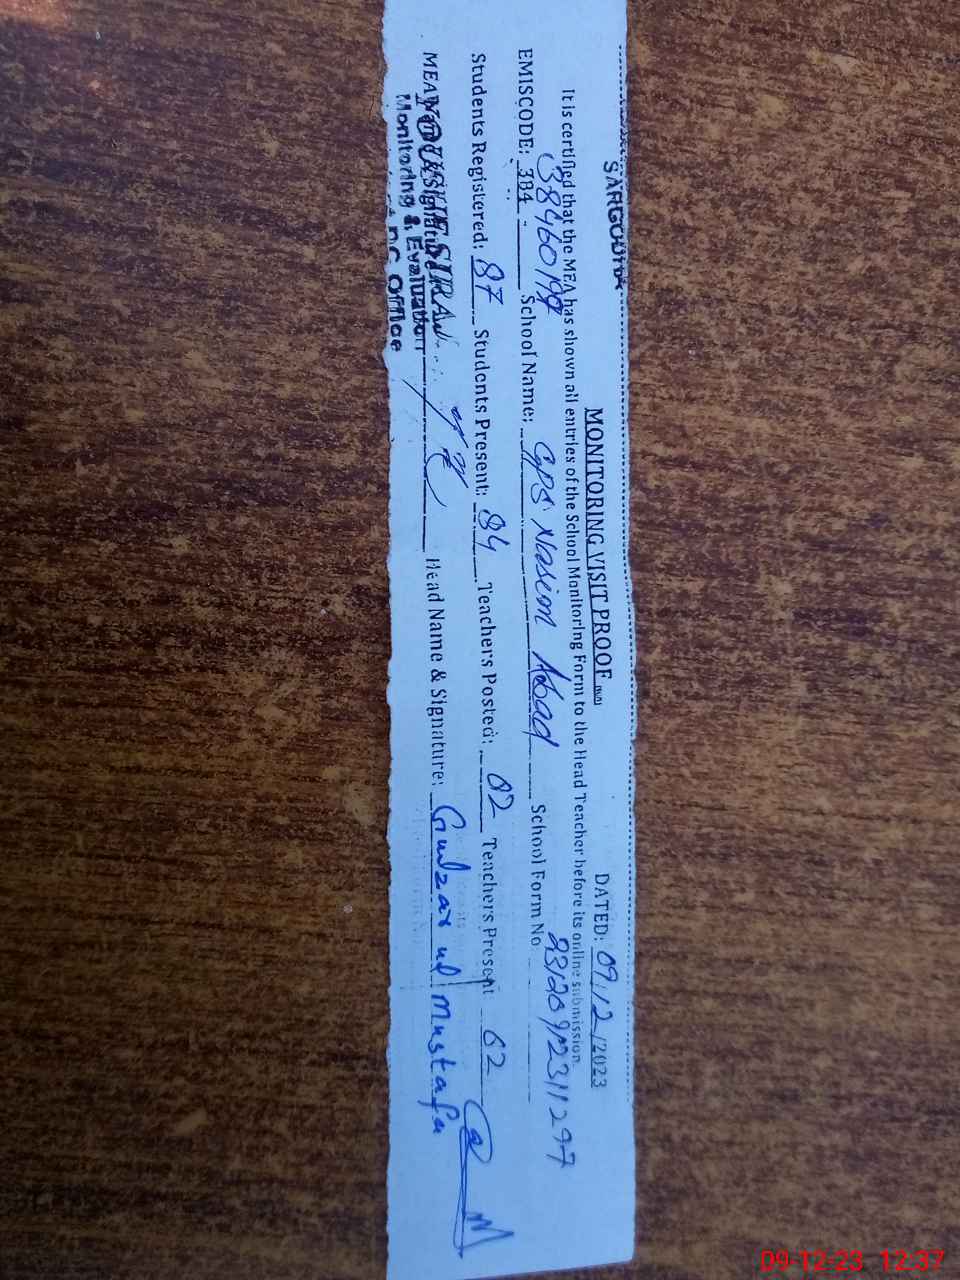 SARGODHA
MONITORING VISIT PROOF DATED: 09/12/2023
It is certified that the MEA has shown all entries of the School Monitoring Form to the Head Teacher before its online submission.
EMISCODE: 384 38460199 School Name: GPS Nasim Abad School Form No.
Students Registered: 87 Students Present: 84 Teachers Posted: 02 Teachers Present 02
MEA Name & Signature Head Name & Signature: Gulzar ul Mustafa
Monitoring & Evaluation
DC Office
09-12-23 12:37